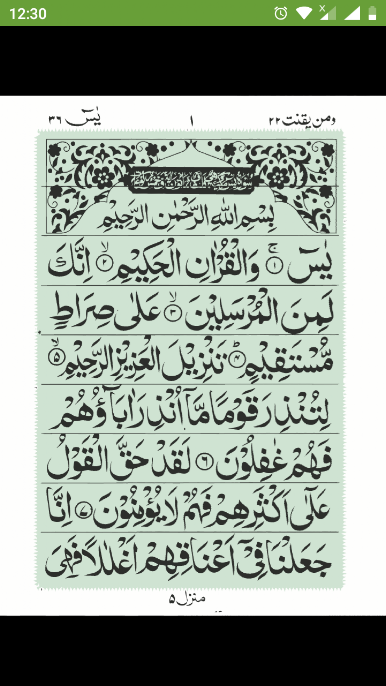 12:30
ومن یقنت ۲۲
۱
یٰسٓ ۳۶
بِسْمِ اللّٰهِ الرَّحْمٰنِ الرَّحِیْمِ
یٰسٓ ۚ﴿۱﴾ وَالْقُرْاٰنِ الْحَكِیْمِ ۙ﴿۲﴾ اِنَّكَ
لَمِنَ الْمُرْسَلِیْنَ ۙ﴿۳﴾ عَلٰی صِرَاطٍ
مُّسْتَقِیْمٍ ؕ﴿۴﴾ تَنْزِیْلَ الْعَزِیْزِ الرَّحِیْمِ ۙ﴿۵﴾
لِتُنْذِرَ قَوْمًا مَّاۤ اُنْذِرَ اٰبَآؤُهُمْ
فَهُمْ غٰفِلُوْنَ ﴿۶﴾ لَقَدْ حَقَّ الْقَوْلُ
عَلٰۤی اَكْثَرِهِمْ فَهُمْ لَا یُؤْمِنُوْنَ ﴿۷﴾ اِنَّا
جَعَلْنَا فِیْۤ اَعْنَاقِهِمْ اَغْلٰلًا فَهِیَ
منزل ۵